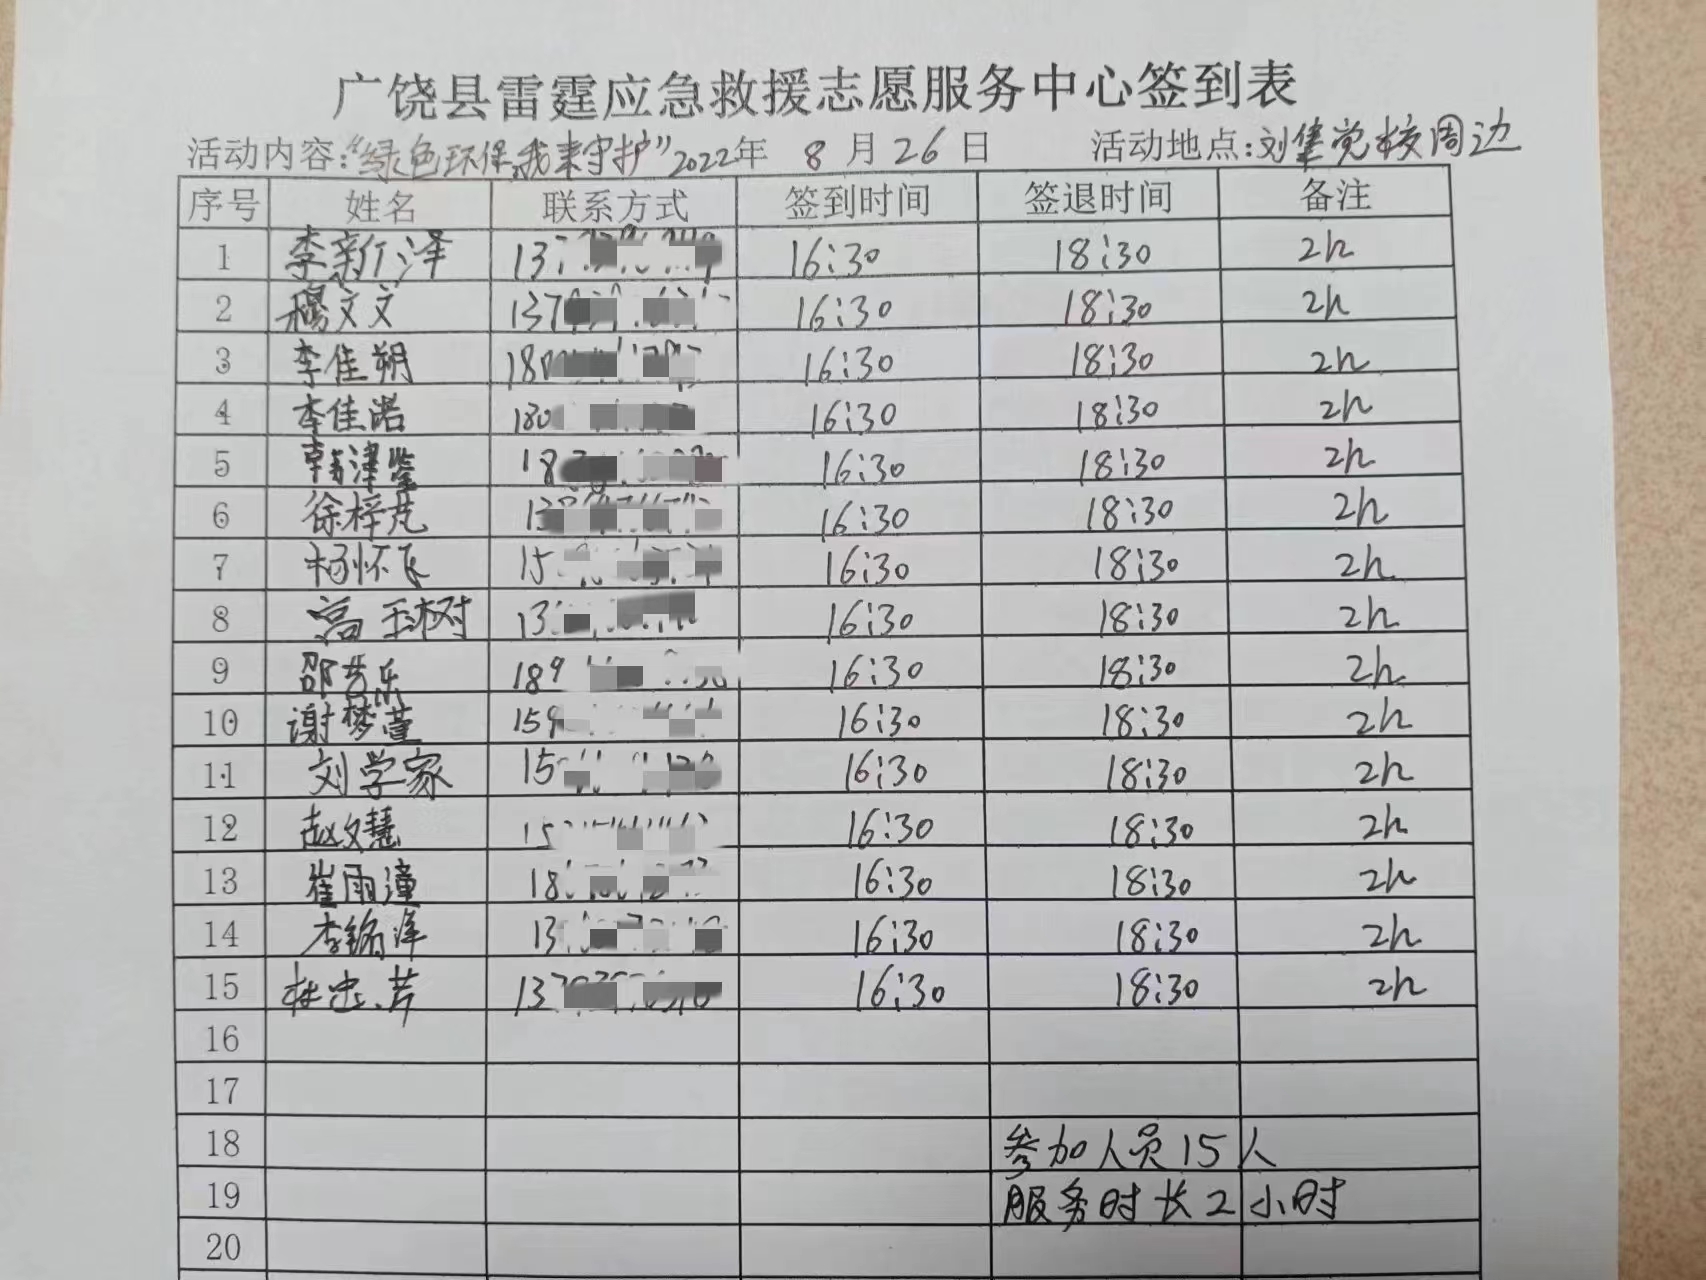 广饶县雷霆应急救援志愿服务中心签到表
活动内容:“绿色环保,我来守护”2022年 8月26日 活动地点:刘集党校周边
序号 姓名 联系方式 签到时间 签退时间 备注
1 李新泽 137 16:30 18:30 2h
2 穆文文 137 16:30 18:30 2h
3 李佳朔 180 16:30 18:30 2h
4 李佳诺 180 16:30 18:30 2h
5 韩津鉴 18 16:30 18:30 2h
6 徐梓芃 13 16:30 18:30 2h
7 杨怀飞 15 16:30 18:30 2h
8 高玉树 13 16:30 18:30 2h
9 邵艺乐 189 16:30 18:30 2h
10 谢梦萱 159 16:30 18:30 2h
11 刘学家 15 16:30 18:30 2h
12 赵文慧 15 16:30 18:30 2h
13 崔雨潼 18 16:30 18:30 2h
14 13 16:30 18:30 2h
15 杜忠芳 137 16:30 18:30 2h
16
17
18 参加人员15人
19 服务时长2小时
20